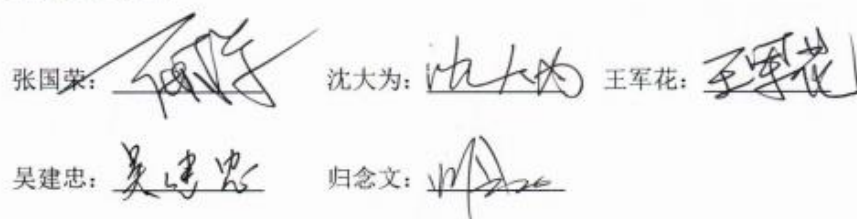 张国荣： 沈大为：沈大为 王军花：王军花
吴建忠：吴建忠 归念文：